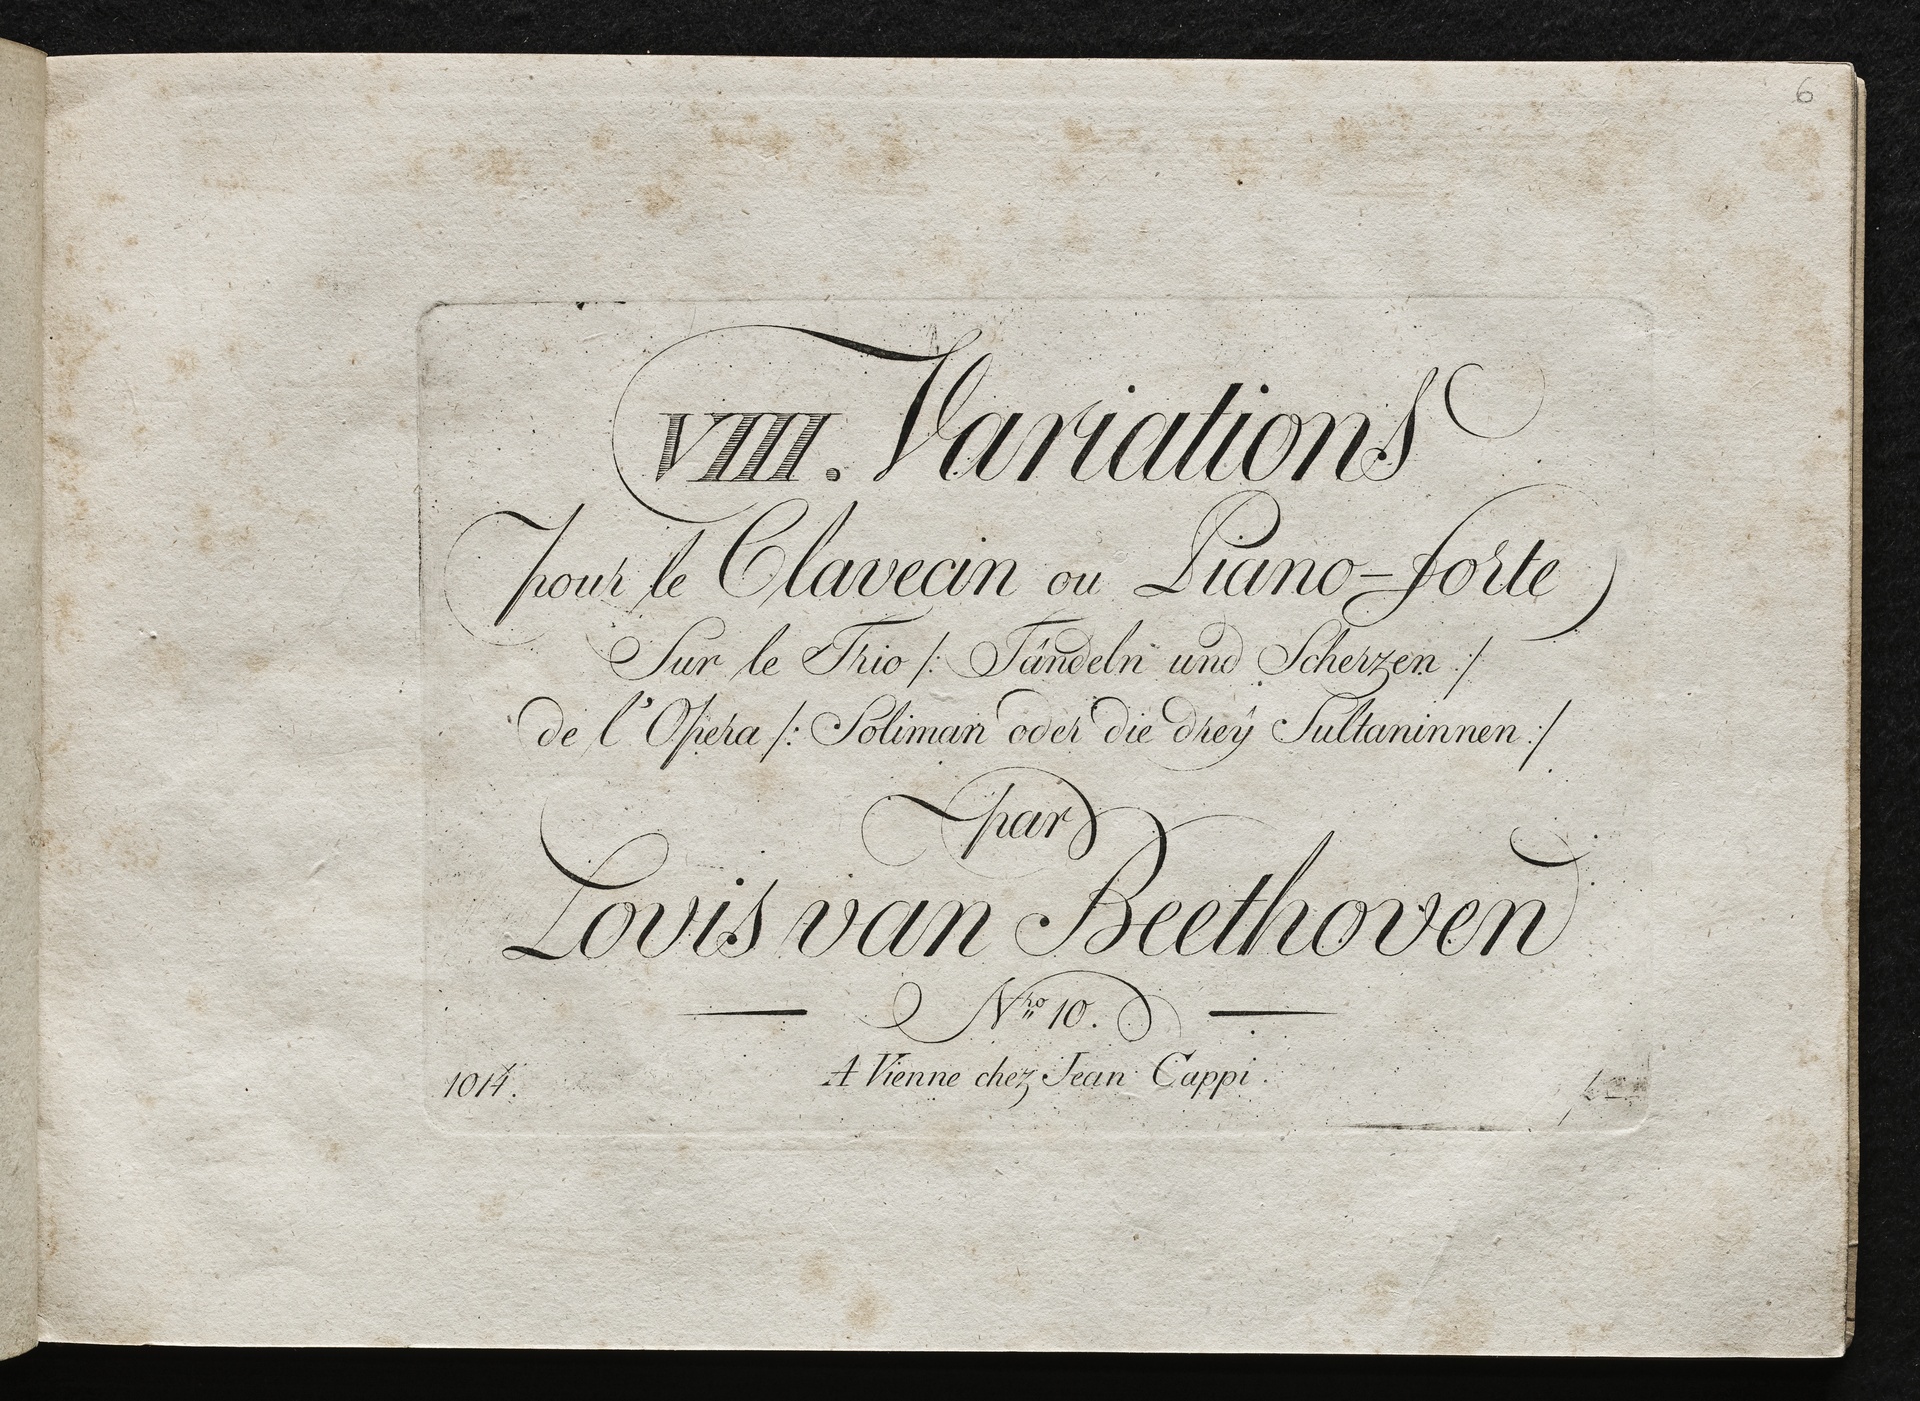 6
VIII. Variations
pour le Clavecin ou Piano-forte
Sur le Trio /: Tändeln und Scherzen :/
de l'Opera /: Soliman oder die dreÿ Sultaninnen :/
par
Lovis van Beethoven
Nro 10.
A Vienne chez Jean Cappi.
1014.